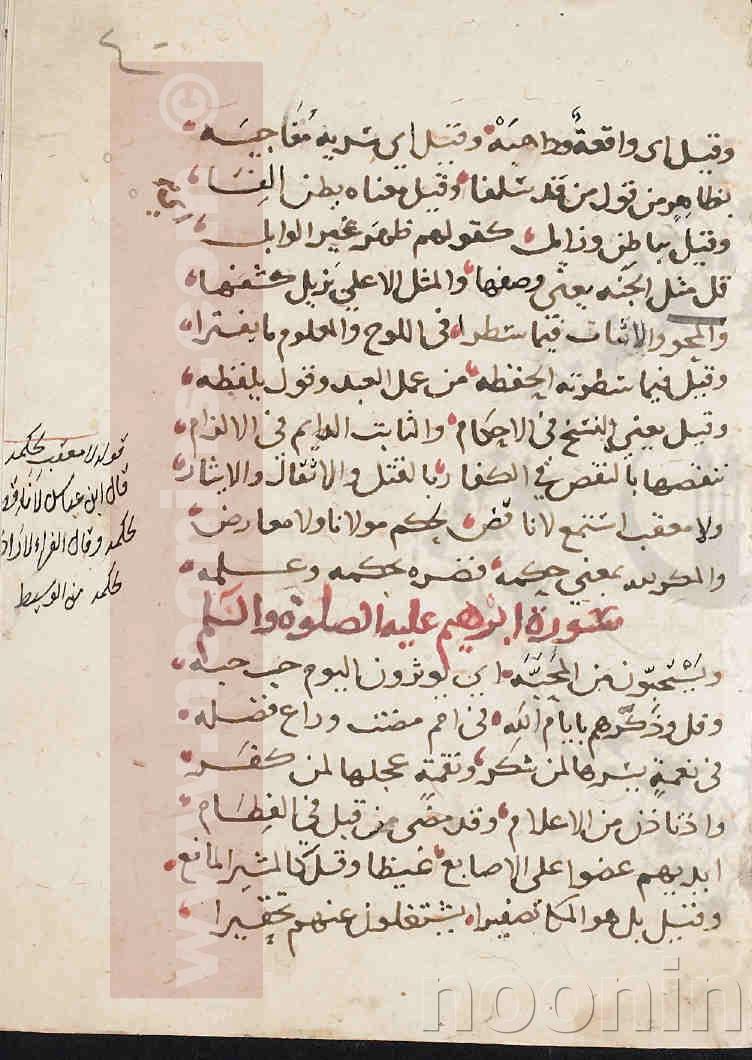 وقيل اى واقعةٌ وداهيَهْ وقيل اى سريه مُفاجيَه
بظاهرٍ من قول من قد سلفا وقيل معناه بطن
وقيل بباطن وزايل كقولهم ظهر عير الوابل
قل مثل الجنه يعنى وصفها والمثل الاعلى يزيل كشفها
والمحو والاثبات فيما سطرا فى اللوح والمعلوم ما يغترا
وقيل فيما سطرته الحفظه من عمل العبد وقول يلفظه
وقيل يعنى النسخ فى الاحكام والثابت الدايم فى الالزام
ننقصها بالنقص فى الكفار بالقتل والانفال والايثار
ولا معقب استمع لا ناقض لحكم مولانا ولا معارض
والمكر لله بمعنى حكمه فضره بحكمه وعلمه
سورة ابرهيم عليه الصلوة والسلم
ويَسْتَحِبّون من المَحَبَّه اى يوثرون اليوم حب حبه
وقل وذكّرهم بايام الله فى امم مضت وراع فضله
فى نعمةٍ يسرها لمن شكر ونقمةٍ عجلها لمن كفر
واذ تاذن من الاعلام وقد مضى من قبل فى
ايديهم عضوا على الاصابع غيظا وقل كالمشير المانع
وقيل بل هو المكا تصفيرا يشتغلون عنهم تحقيرا
قوله لا معقب لحكمه
قال ابن عباس لا ناقض
لحكمه وقال الفراء لا راد
لحكمه من الوسيط
©
www.noonin
noonin